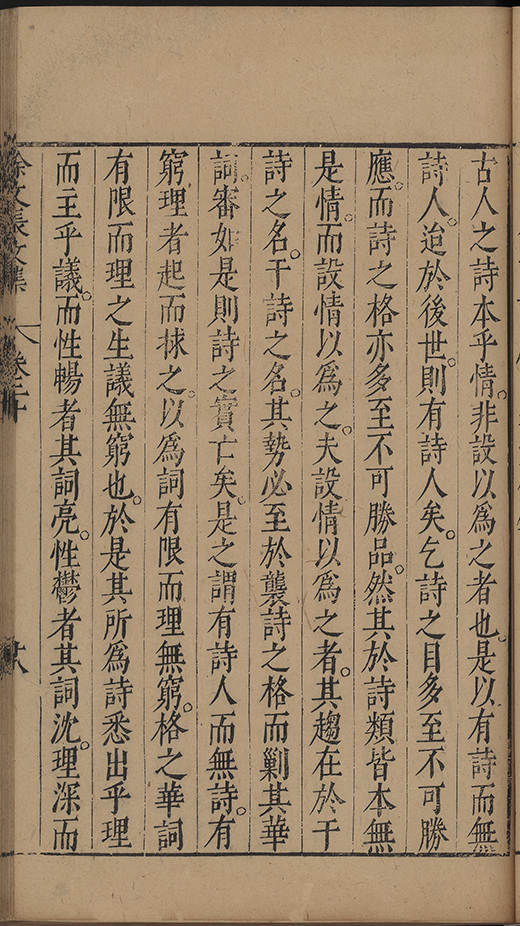 古人之詩本乎情。非設以為之者也。是以有詩而無
詩人。迨於後世。則有詩人矣。乞詩之目多至不可勝
應。而詩之格亦多至不可勝品。然其於詩類皆本無
是情。而設情以為之。夫設情以為之者。其趨在於干
詩之名。干詩之名。其勢必至於襲詩之格而剿其華
詞。審如是則詩之實亡矣。是之謂有詩人而無詩。有
窮理者起而捄之。以為詞有限而理無窮。格之華詞
有限而理之生議無窮也。於是其所為詩悉出乎理
而主乎議。而性暢者其詞亮。性鬱者其詞沈。理深而
徐文長文集 卷二十 廿八